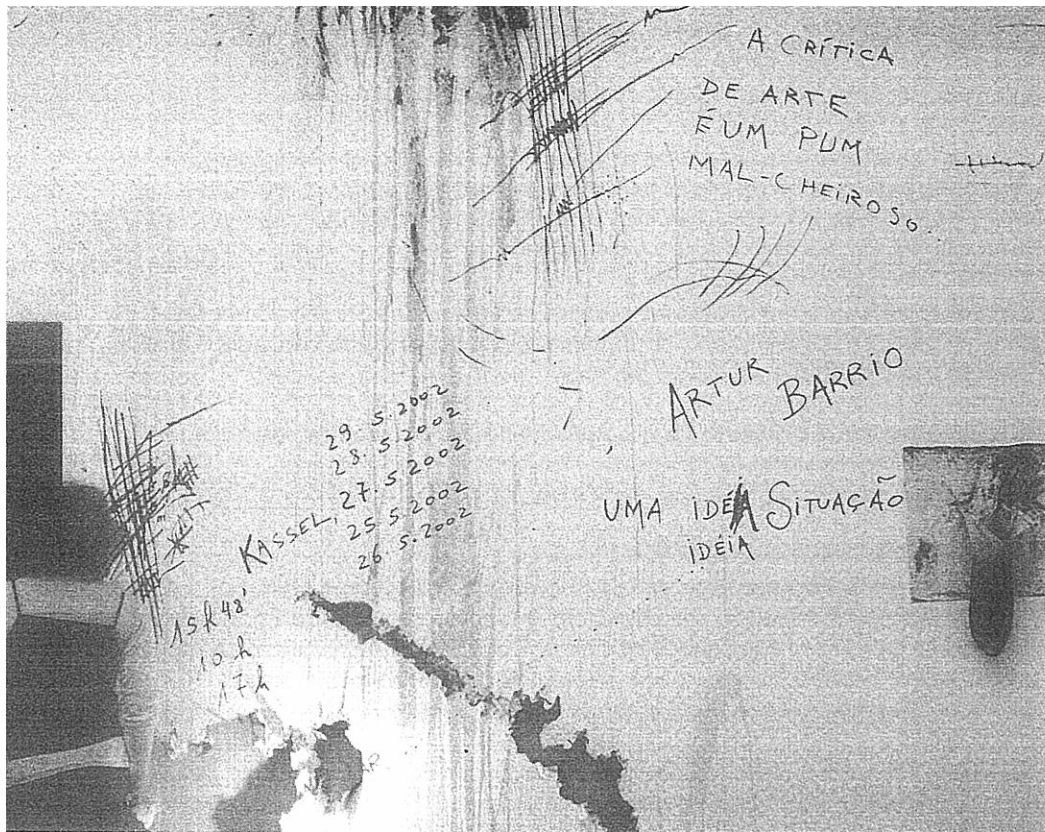 A CRÍTICA
DE ARTE
É UM PUM
MAL-CHEIROSO..
ARTUR BARRIO
UMA IDÉIA SITUAÇÃO
IDÉIA
29.5.2002
28.5.2002
KASSEL, 27.5.2002
25.5.2002
26.5.2002
15h48'
10h
17h